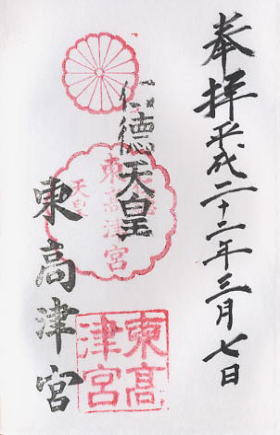 奉拝平成二十二年三月七日
仁徳天皇
東高津宮
東高津宮
天皇
東高津宮